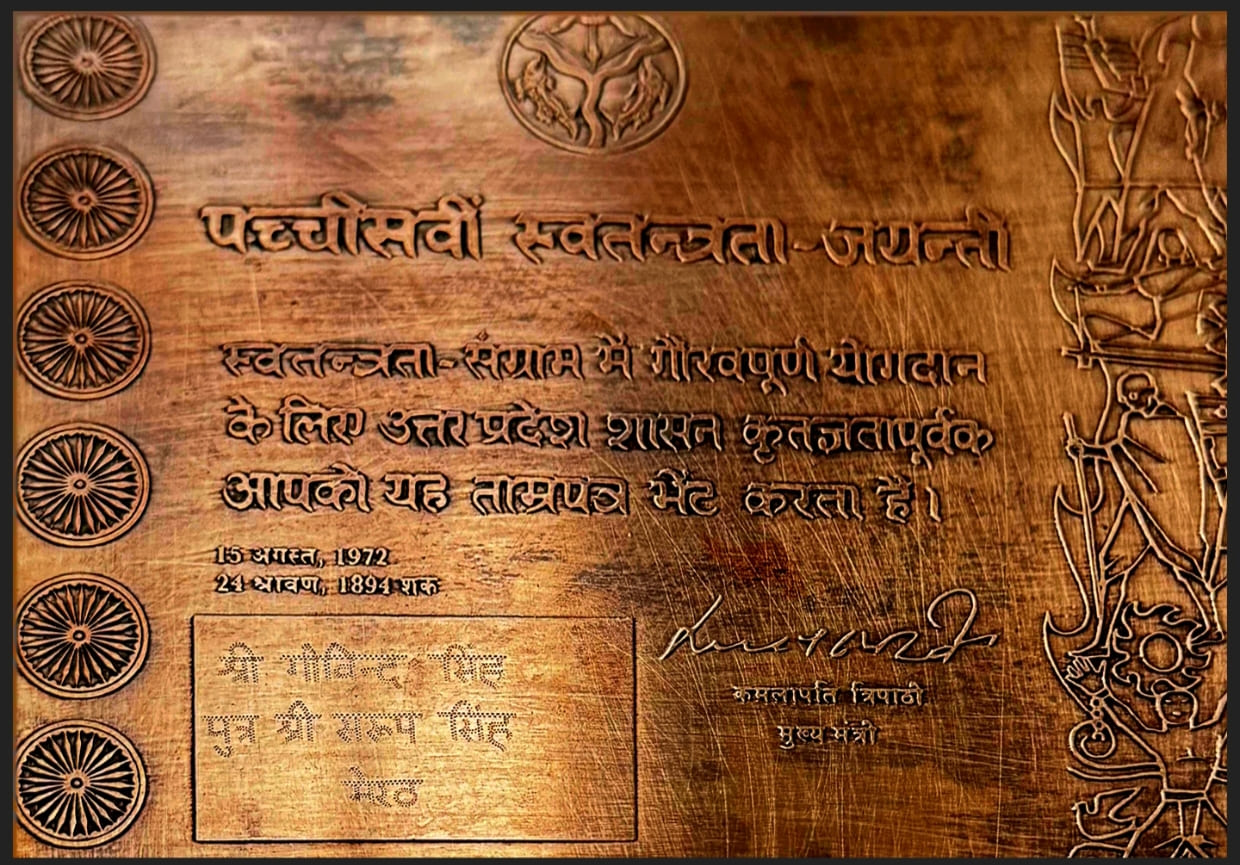 पच्चीसवीं स्वतन्त्रता-जयन्ती
स्वतन्त्रता-संग्राम में गौरवपूर्ण योगदान
के लिए उत्तर प्रदेश शासन कृतज्ञतापूर्वक
आपको यह ताम्रपत्र भेंट करता है।
15 अगस्त, 1972
24 श्रावण, 1894 शक
श्री गोविन्द सिंह
पुत्र श्री सरूप सिंह
मेरठ
कमलापति त्रिपाठी
मुख्य मंत्री